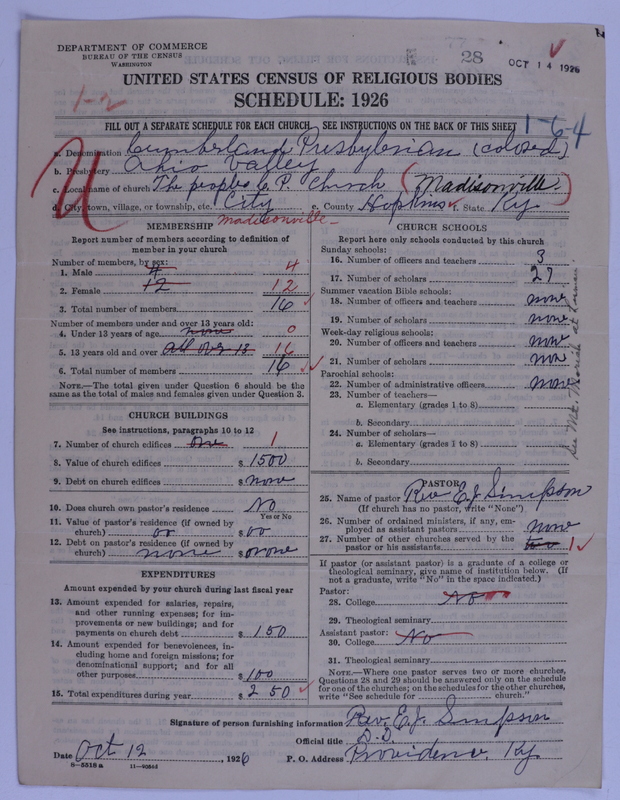 DEPARTMENT OF COMMERCE
BUREAU OF THE CENSUS
WASHINGTON
28
OCT 14 1926
UNITED STATES CENSUS OF RELIGIOUS BODIES
SCHEDULE: 1926
1-2
FILL OUT A SEPARATE SCHEDULE FOR EACH CHURCH. SEE INSTRUCTIONS ON THE BACK OF THIS SHEET
1-64
a. Denomination Cumberland Presbyterian (colored)
b. Presbytery Ohio Valley
c. Local name of church The peoples C. P. Church (Madisonville.)
d. City, town, village, or township, etc. City e. County Hopkins f. State Ky.
Madisonville
MEMBERSHIP
Report number of members according to definition of
member in your church
Number of members, by sex:
1. Male 4 4
2. Female 12 12
3. Total number of members 16
Number of members under and over 13 years old:
4. Under 13 years of age none 0
5. 13 years old and over all over 13 16
6. Total number of members 16
NOTE.—The total given under Question 6 should be the
same as the total of males and females given under Question 3.
CHURCH BUILDINGS
See instructions, paragraphs 10 to 12
7. Number of church edifices one 1
8. Value of church edifices $ 1500
9. Debt on church edifices $ none
10. Does church own pastor's residence No
Yes or No
11. Value of pastor's residence (if owned by
church) oo $ oo
12. Debt on pastor's residence (if owned by
church) none $ none
EXPENDITURES
Amount expended by your church during last fiscal year
13. Amount expended for salaries, repairs,
and other running expenses; for im-
provements or new buildings; and for
payments on church debt $ 150
14. Amount expended for benevolences, in-
cluding home and foreign missions; for
denominational support; and for all
other purposes $ 100
15. Total expenditures during year $ 250
CHURCH SCHOOLS
Report here only schools conducted by this church
Sunday schools:
16. Number of officers and teachers 3
17. Number of scholars 27
Summer vacation Bible schools:
18. Number of officers and teachers none
19. Number of scholars none
Week-day religious schools:
20. Number of officers and teachers none
21. Number of scholars non
Parochial schools:
22. Number of administrative officers none
23. Number of teachers—
a. Elementary (grades 1 to 8)
b. Secondary
24. Number of scholars—
a. Elementary (grades 1 to 8)
b. Secondary
PASTOR
25. Name of pastor Rev E.J. Simpson
(If church has no pastor, write "None")
26. Number of ordained ministers, if any, em-
ployed as assistant pastors none
27. Number of other churches served by the
pastor or his assistants two 1
If pastor (or assistant pastor) is a graduate of a college or
theological seminary, give name of institution below. (If
not a graduate, write "No" in the space indicated.)
Pastor:
28. College No
29. Theological seminary
Assistant pastor:
30. College No
31. Theological seminary
NOTE.—Where one pastor serves two or more churches,
Questions 28 and 29 should be answered only on the schedule
for one of the churches; on the schedules for the other churches,
write "See schedule for church."
Signature of person furnishing information Rev. E.J. Simpson
Official title D.D.
Date Oct 12, 1926 P. O. Address Providence, Ky.
8-5518 a